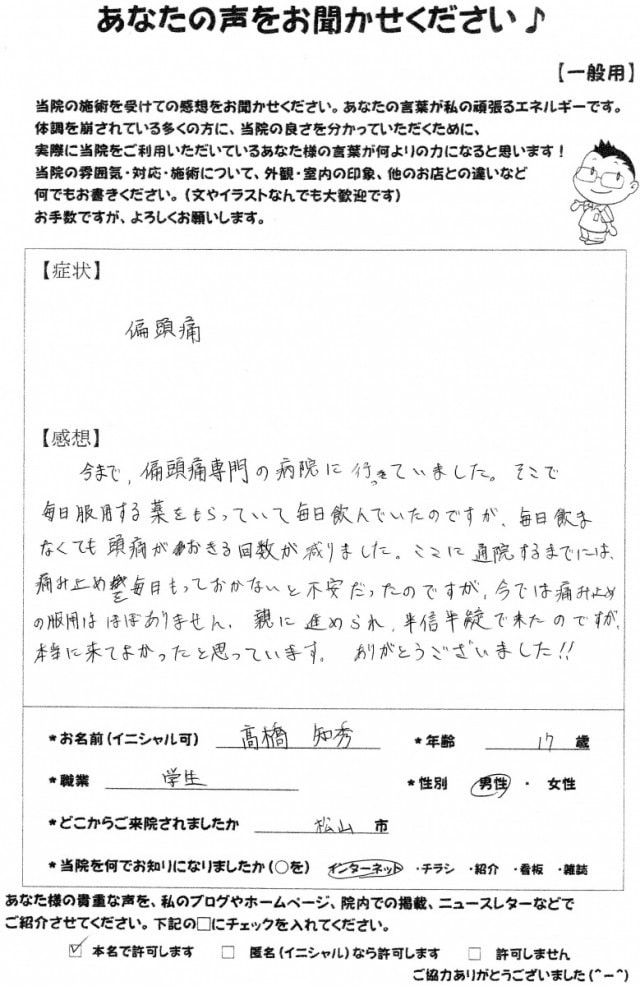 あなたの声をお聞かせください♪
【一般用】
当院の施術を受けての感想をお聞かせください。あなたの言葉が私の頑張るエネルギーです。
体調を崩されている多くの方に、当院の良さを分かっていただくために、
実際に当院をご利用いただいているあなた様の言葉が何よりの力になると思います！
当院の雰囲気・対応・施術について、外観・室内の印象、他のお店との違いなど
何でもお書きください。（文やイラストなんでも大歓迎です）
お手数ですが、よろしくお願いします。
【症状】
偏頭痛
【感想】
今まで、偏頭痛専門の病院に行っていました。そこで
毎日服用する薬をもらっていて毎日飲んでいたのですが、毎日飲ま
なくても頭痛がおきる回数が減りました。ここに通院するまでには、
痛み止めを毎日もっておかないと不安だったのですが、今では痛み止め
の服用はほぼありません。親に進められ、半信半錠で来たのですが、
本当に来てよかったと思っています。ありがとうございました!!
*お名前（イニシャル可） 高橋 知秀 *年齢 17 歳
*職業 学生 *性別 男性 ・ 女性
*どこからご来院されましたか 松山 市
*当院を何でお知りになりましたか（○を） インターネット ・チラシ ・紹介 ・看板 ・雑誌
あなた様の貴重な声を、私のブログやホームページ、院内での掲載、ニュースレターなどで
ご紹介させてください。下記の□にチェックを入れてください。
☑ 本名で許可します □ 匿名（イニシャル）なら許可します □ 許可しません
ご協力ありがとうございました（^－^）